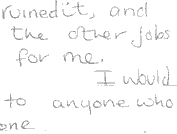 ruinedit, and
the other jobs
for me.
I would
to anyone who
one